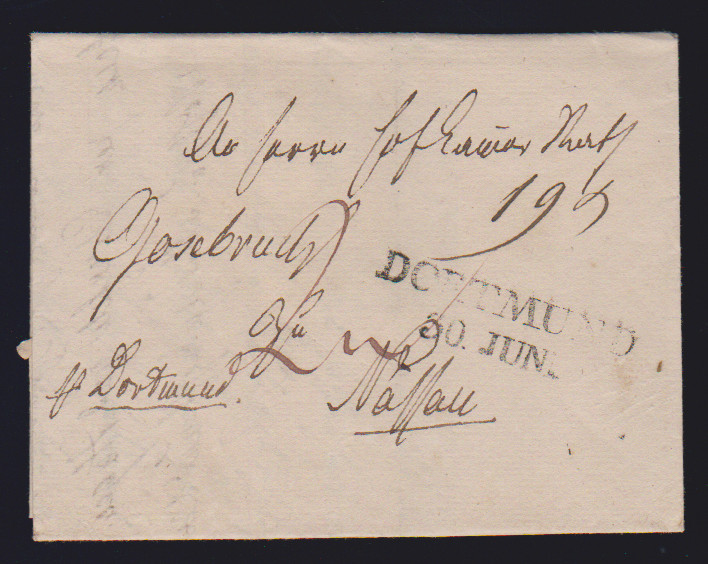 An Herrn HofKammer Rath
Gosebruch
DORTMUND
30. JUN.
Zu
Nassau
Dortmund.